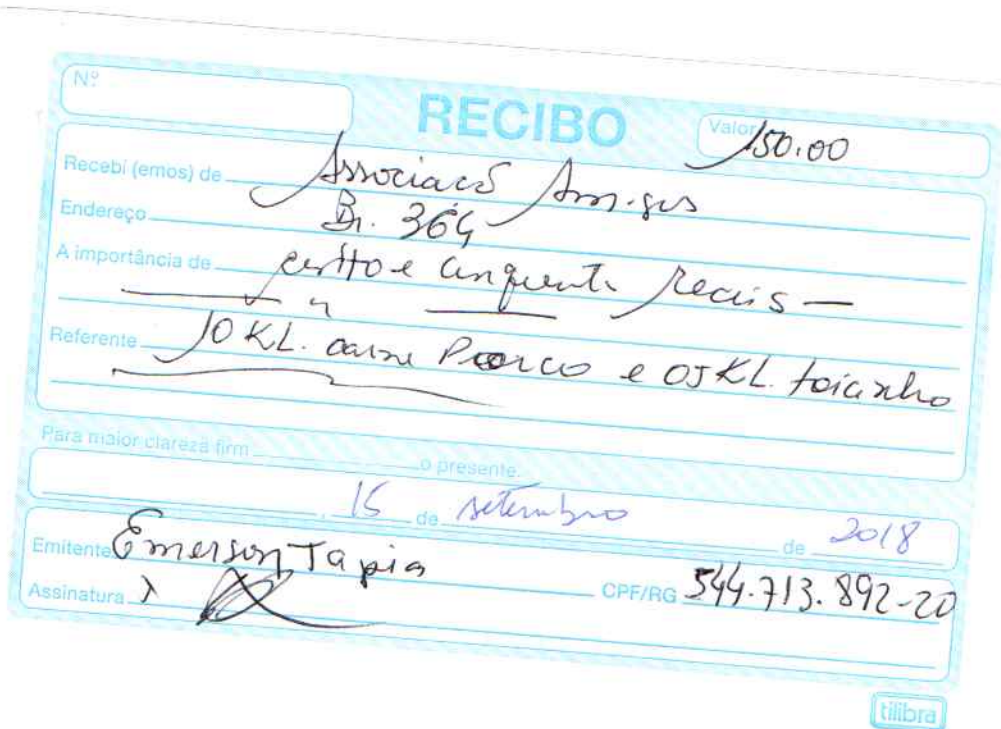 Nº
RECIBO
Valor 150.00
Recebi (emos) de Associacõ Amigos
Endereço Br. 364
A importância de cento e cinquenta reais —
Referente 10 KL. carne Porco e 05 KL. toicinho
Para maior clareza firm o presente.
, 15 de setembro de 2018
Emitente Emerson Tapia CPF/RG 544.713.892-20
Assinatura
tilibra